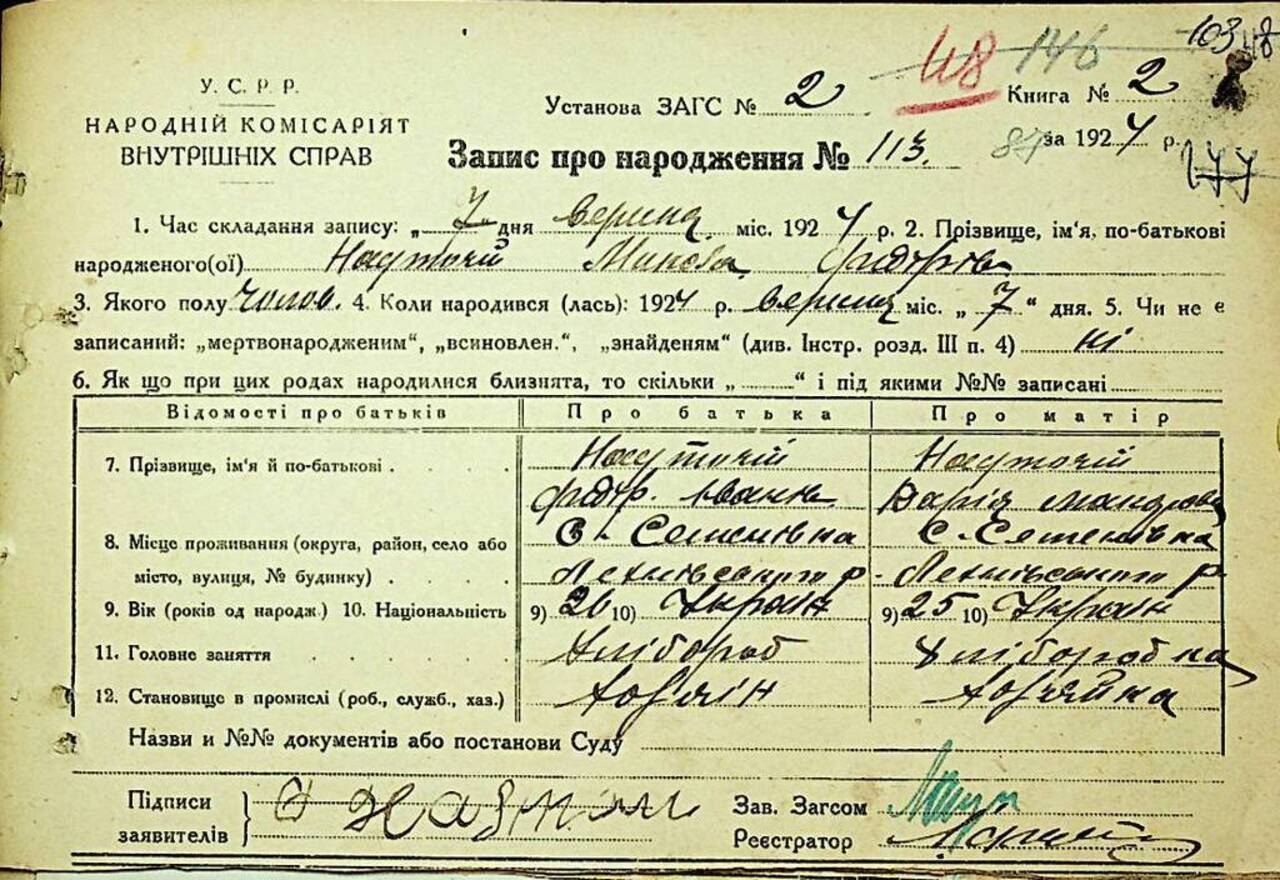 У. С. Р. Р.
НАРОДНІЙ КОМІСАРІЯТ
ВНУТРІШНІХ СПРАВ
48 146 103 48
Установа ЗАГС № 2 Книга № 2
Запис про народження № 113. за 1924 р.
177
1. Час складання запису: „ 7 дня вересня міс. 1924 р. 2. Прізвище, ім'я, по-батькові
народженого(ої) Микола
3. Якого полу чолов. 4. Коли народився (лась): 1924 р. вересня міс. „ 7 “ дня. 5. Чи не є
записаний: „мертвонародженим“, „всиновлен.“, „знайденям“ (див. Інстр. розд. III п. 4) ні
6. Як що при цих родах народилися близнята, то скільки „ “ і під якими №№ записані
Відомости про батьків Про батька Про матір
7. Прізвище, ім'я й по-батькові
8. Місце проживання (округа, район, село або С. Семенівка С. Семенівка
місто, вулиця, № будинку)
9. Вік (років од народж.) 10. Національність 9) 26 10) Україн 9) 25 10) Україн
11. Головне заняття Хлібороб Хліборобка
12. Становище в промислі (роб., служб., хаз.)
Назви и №№ документів або постанови Суду
Підписи
заявителів
Зав. Загсом
Реєстратор